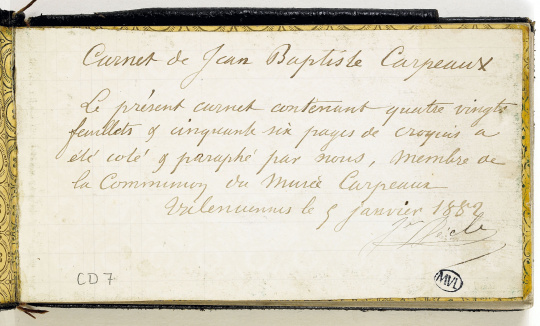 Carnet de Jean Baptiste Carpeaux
Le présent carnet contenant quatre vingts
feuillets & cinquante six pages de croquis a
été coté & paraphé par nous, membre de
la Commission du Musée Carpeaux
Valenciennes le 5 janvier 1882
CD7
MVL